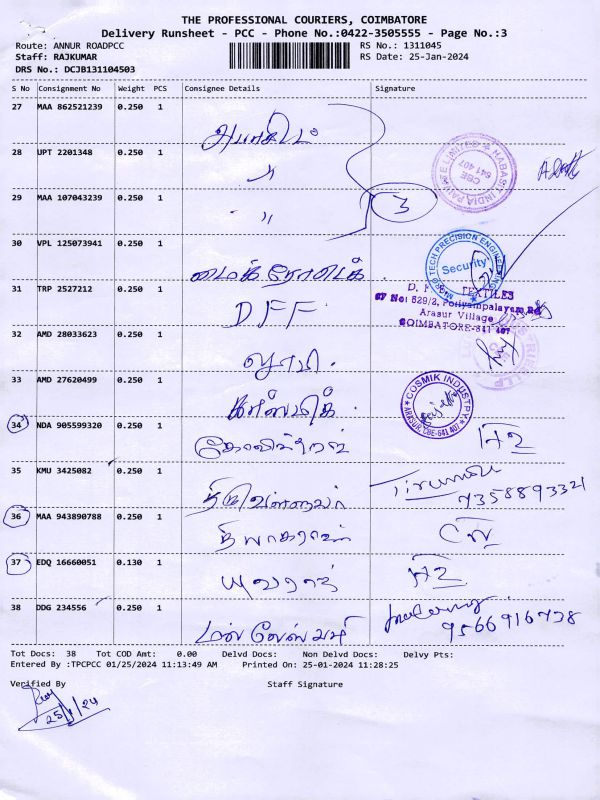 THE PROFESSIONAL COURIERS, COIMBATORE
Delivery Runsheet - PCC - Phone No.:0422-3505555 - Page No.:3
Route: ANNUR ROADPCC
RS No.: 1311045
Staff: RAJKUMAR
RS Date: 25-Jan-2024
DRS No.: DCJB131104503
S No Consignment No Weight PCS Consignee Details Signature
27 MAA 862521239 0.250 1
28 UPT 2201348 0.250 1 "
HABASIT INDIA PRIVATE LIMITED
CBE
641 407
29 MAA 107043239 0.250 1 "
3
30 VPL 125073941 0.250 1 மைக்ரோடெக்
MICRO TECH PRECISION ENGINEERING
Security
31 TRP 2527212 0.250 1 DFF
TEXTILES
629/2, Pottyampalayam Rd
Arasur Village
COIMBATORE-641 407
32 AMD 28033623 0.250 1
33 AMD 27620499 0.250 1 காஸ்மிக்
COSMIK INDUSTRY
ARASUR CBE-641 407
34 NDA 905599320 0.250 1 H2
35 KMU 3425082 0.250 1 திருவள்ளுவர்
9358893321
36 MAA 943890788 0.250 1 தியாகராஜன்
37 EDQ 16660051 0.130 1 யுவராஜ் H2
38 DDG 234556 0.250 1
9566916738
Tot Docs: 38 Tot COD Amt: 0.00 Delvd Docs: Non Delvd Docs: Delvy Pts:
Entered By :TPCPCC 01/25/2024 11:13:49 AM Printed On: 25-01-2024 11:28:25
Verified By Staff Signature
25/1/24